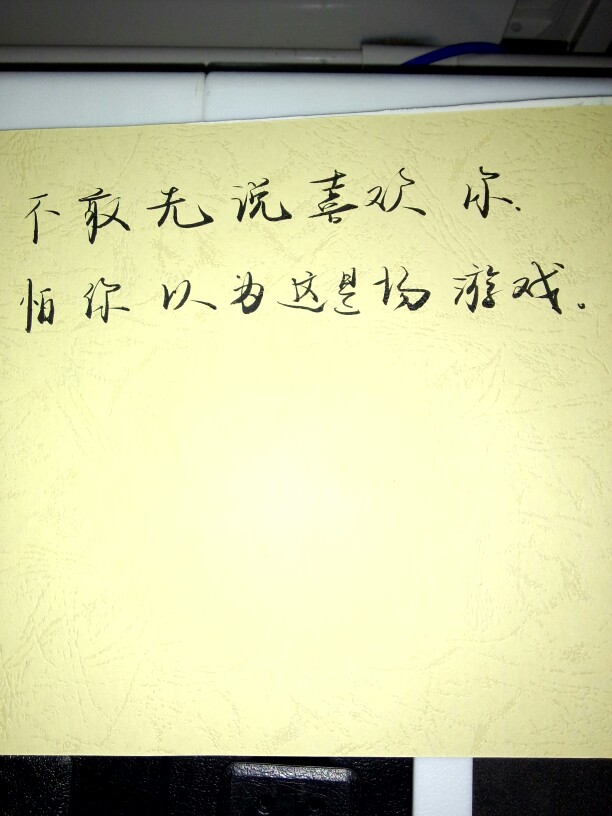 不敢先说喜欢你、
怕你以为这是场游戏。